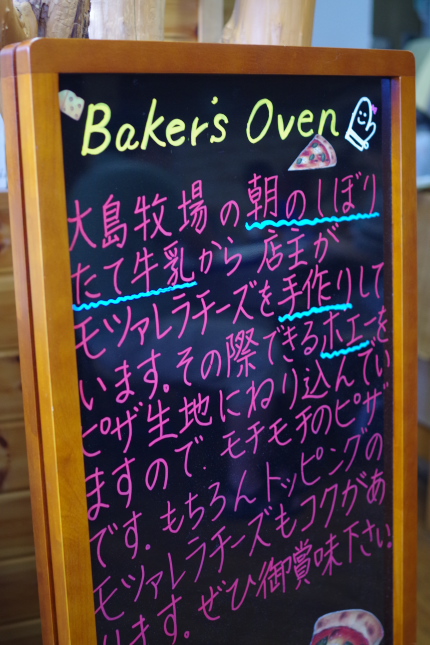 Baker's Oven
大島牧場の朝のしぼり
たて牛乳から店主が
モツァレラチーズを手作りして
います。その際できるホエーを
ピザ生地にねり込んでい
ますので、モチモチのピザ
です。もちろんトッピングの
モツァレラチーズもコクがあ
ります。ぜひ御賞味下さい。